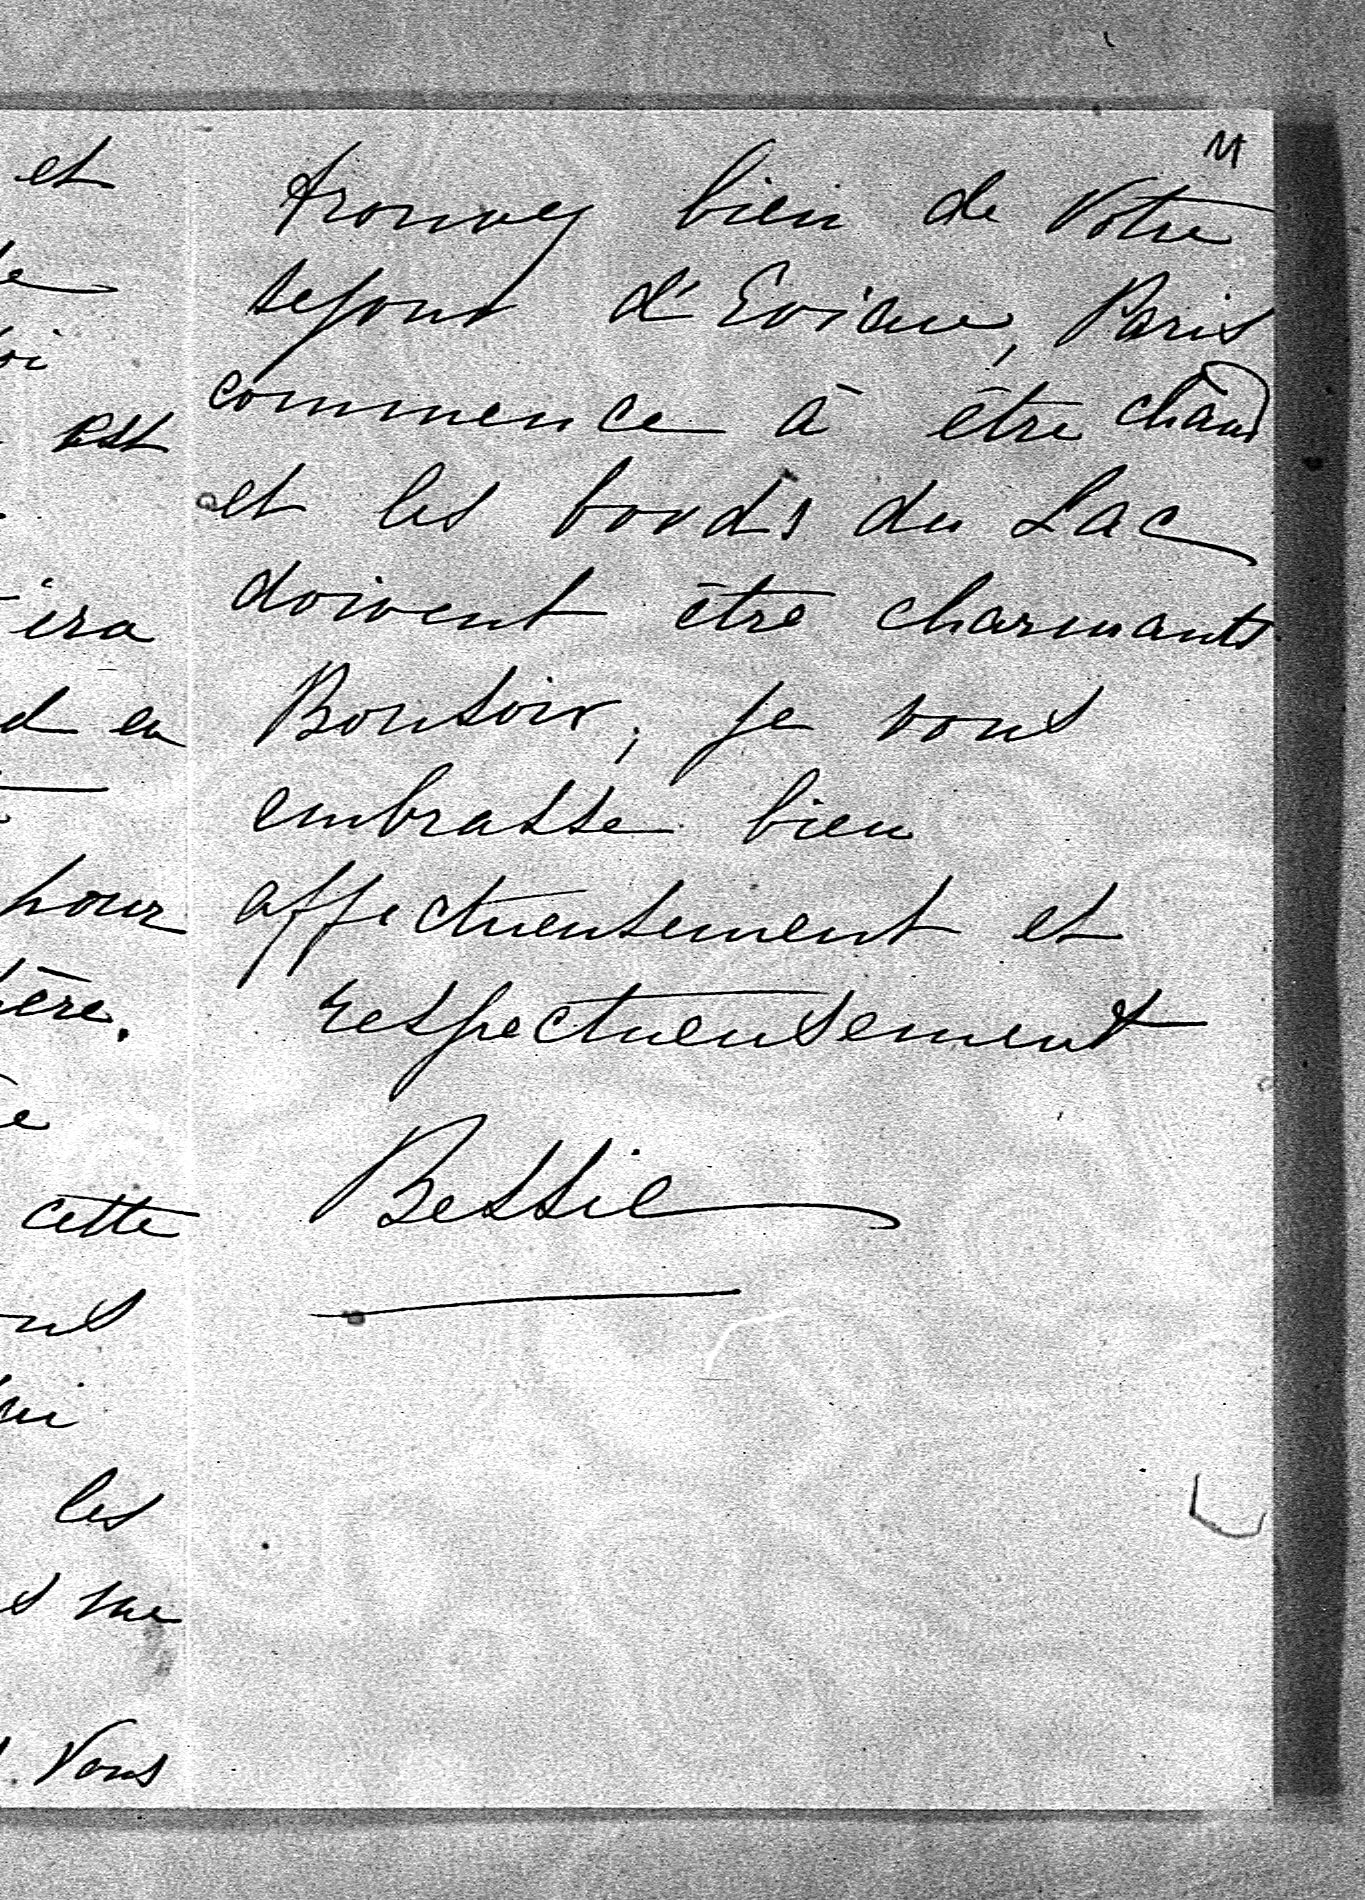 et
est
ira
d en
pour
ère.
cette
les
s me
Vous
M
trouvez bien de votre
sejour d'Eviane, Paris
commence à être chaud
et les bords du Lac
doivent être charmants
Bonsoir, je vous
embrasse bien
affectueusement et
respectueusement
Bessie